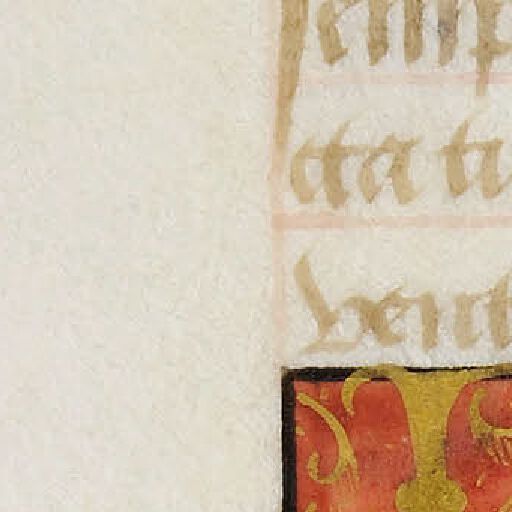 semp
cta ti
vent